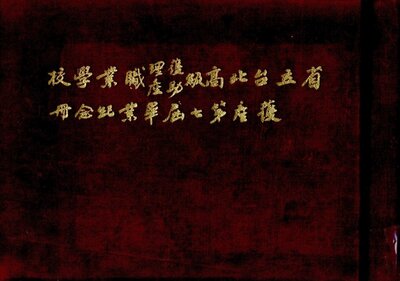 省立台北高級護理助產職業學校
護產第七屆畢業紀念冊